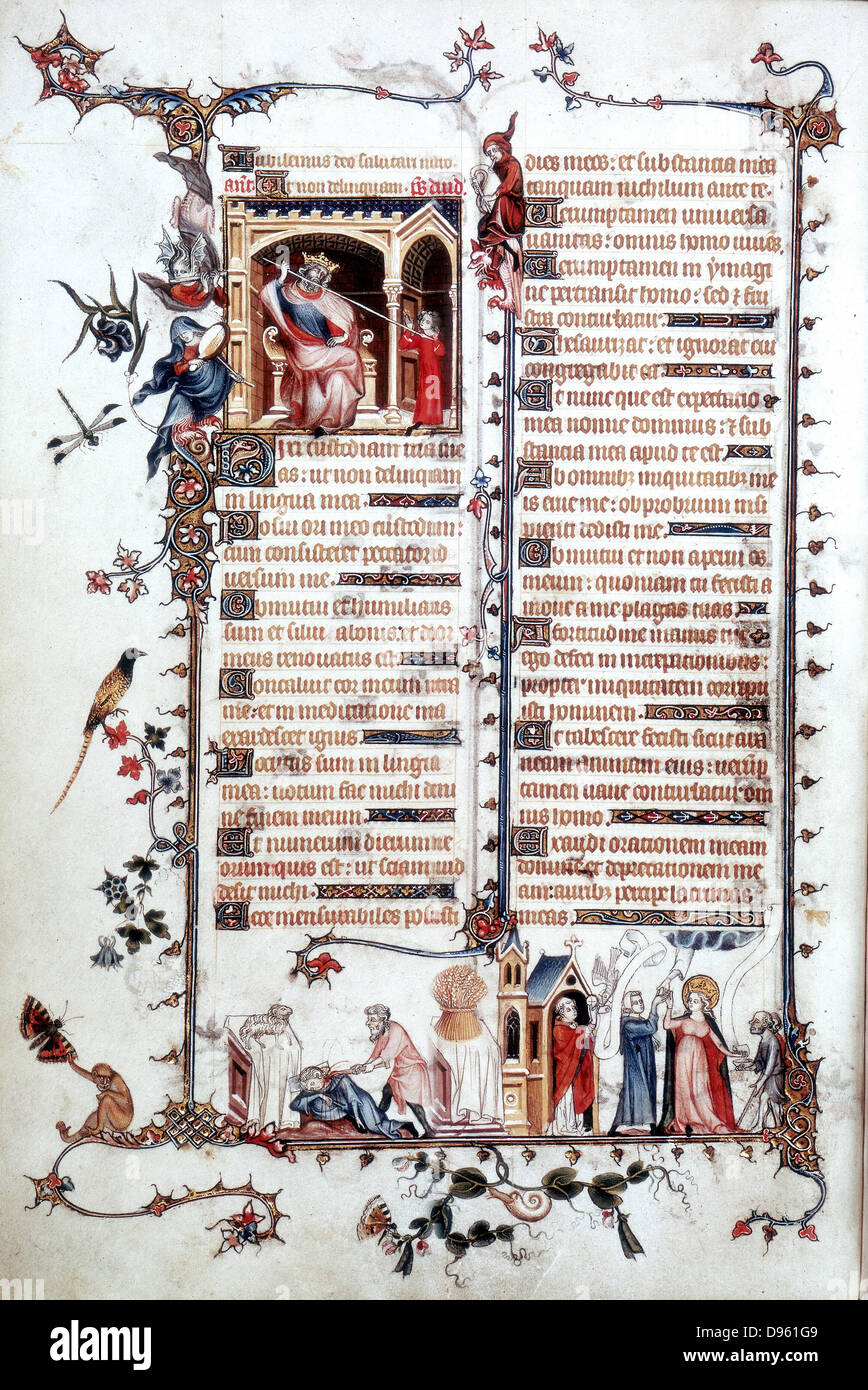 Iubilemus deo salutari nr̄o.
ant̄. Ut non delinquam. ps̄ dauid.
Dixi custodiam uias me
as: ut non delinquam
in lingua mea.
Posui ori meo custodiam:
cum consisteret peccator ad
uersum me.
Obmutui et humiliatus
sum et silui a bonis: et dolor
meus renouatus est.
Concaluit cor meum intra
me: et in meditatione mea
exardescet ignis.
Locutus sum in lingua
mea: notum fac michi domi
ne finem meum.
Et numerum dierum me
orum quis est: ut sciam quid
desit michi.
Ecce mensurabiles posuisti
dies meos: et substancia mea
tanquam nichilum ante te.
Uerumptamen uniuersa
uanitas: omnis homo uiuens.
Uerumptamen in ymagi
ne pertransit homo: sed et frus
tra conturbatur.
Thesaurizat: et ignorat cui
congregabit ea.
Et nunc que est expectatio
mea nonne dominus: et sub
stancia mea apud te est.
Ab omnibus iniquitatibus me
is erue me: obprobrium insi
pienti dedisti me.
Obmutui et non aperui os
meum: quoniam tu fecisti a
moue a me plagas tuas.
A fortitudine manus tue
ego defeci in increpationibus:
propter iniquitatem corripu
isti hominem.
Et tabescere fecisti sicut ara
neam animam eius: uerump
tamen uane conturbatur om
nis homo.
Exaudi orationem meam
domine et deprecationem me
am: auribus percipe lacrimas
meas.
alamy stock photo
D961G9
www.alamy.com